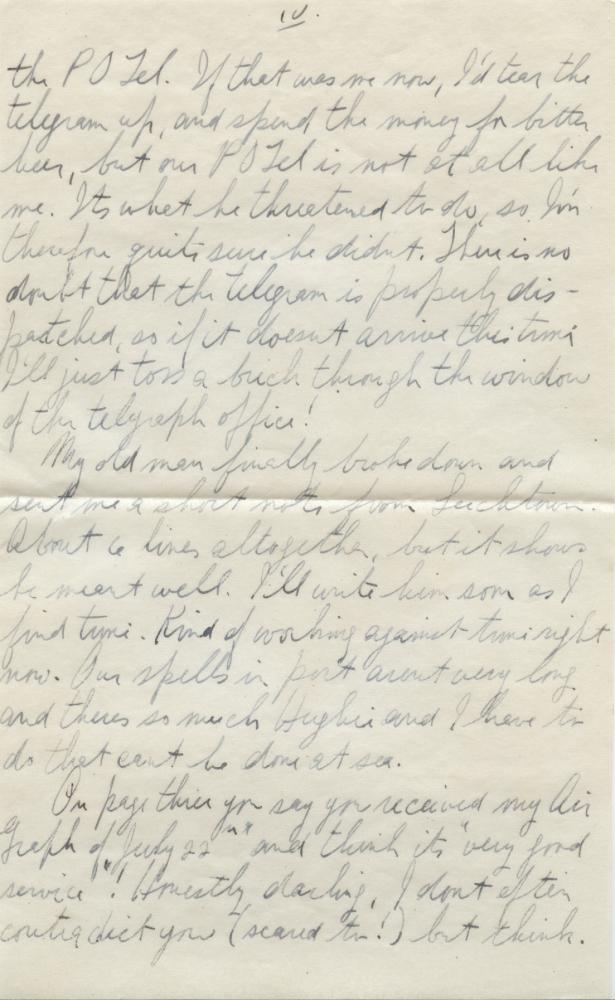 IV.
the P O Tel. If that was me now, I'd tear the
telegram up, and spend the money for bitter
beer, but our P O Tel is not at all like
me. Its what he threatened to do, so I'm
therefore quite sure he didnt. There is no
doubt that the telegram is properly dis-
patched, so if it doesnt arrive this time
I'll just toss a brick through the window
of the telgraph office!
My old man finally broke down and
sent me a short note from Leechtown.
About 6 lines altogether, but it shows
he meant well. I'll write him soon as I
find time. Kind of working against time right
now. Our spells in port arent very long
and theres so much Hughie and I have to
do that cant be done at sea.
On page three you say you received my Air
Graph of "July 22nd" and think its "very good
service"! Honestly, darling, I dont often
contradict you (scared to!) but think.